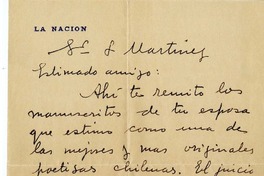 LA NACION
Sr S Martinez
Estimado amigo:
Ahí te remito los
manuscritos de tu esposa
que estimo como una de
las mejores y mas originales
poetisas chilenas. El juicio